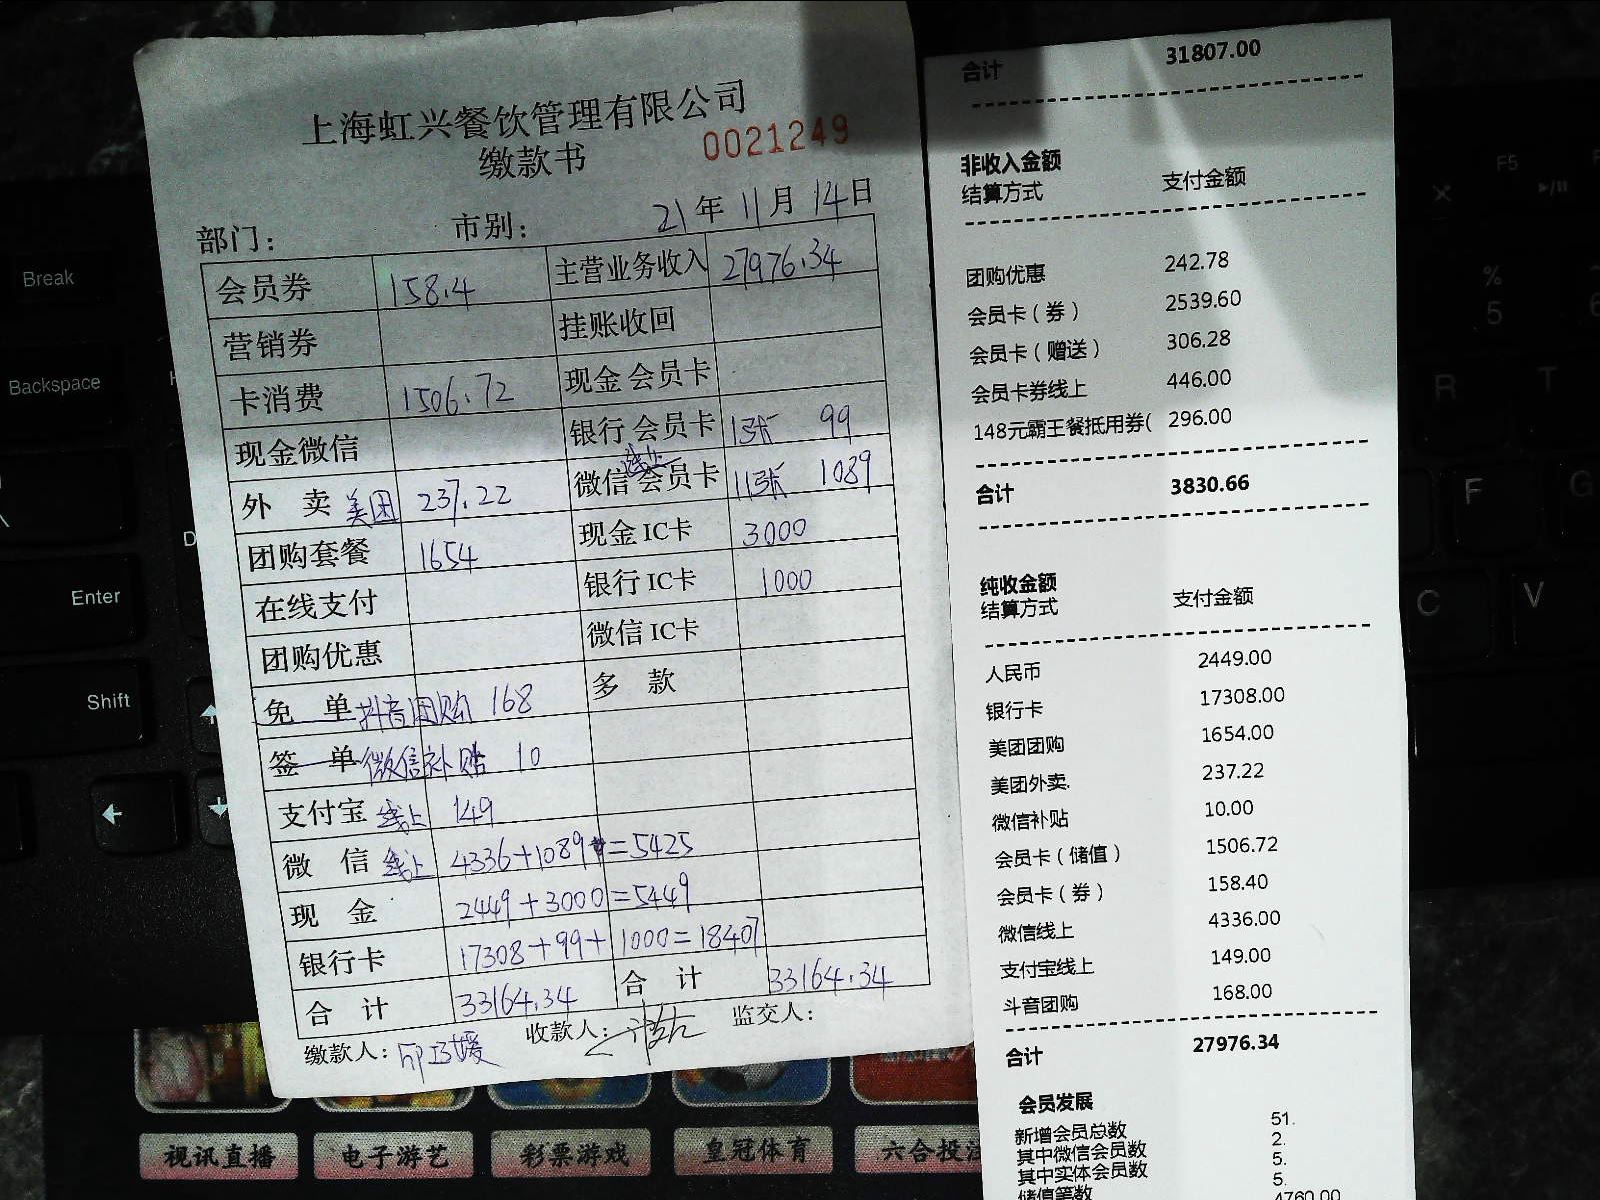 上海虹兴餐饮管理有限公司
缴款书
0021249
部门：
市别：
21年11月14日
会员券 158.4 主营业务收入 27976.34
营销券 挂账收回
卡消费 1506.72 现金会员卡
现金微信 银行会员卡 1张 99
外卖 美团 237.22 微信线上会员卡 11张 1089
团购套餐 1654 现金IC卡 3000
在线支付 银行IC卡 1000
团购优惠 微信IC卡
免单 抖音团购 168 多款
签单 微信补贴 10
支付宝 线上 149
微信 线上 4336+1089=5425
现金 2449+3000=5449
银行卡 17308+99+1000=18407
合计 33164.34 合计 33164.34
缴款人：
收款人：
监交人：
合计 31807.00
非收入金额
结算方式 支付金额
团购优惠 242.78
会员卡（券） 2539.60
会员卡（赠送） 306.28
会员卡券线上 446.00
148元霸王餐抵用券( 296.00
合计 3830.66
纯收金额
结算方式 支付金额
人民币 2449.00
银行卡 17308.00
美团团购 1654.00
美团外卖. 237.22
微信补贴 10.00
会员卡（储值） 1506.72
会员卡（券） 158.40
微信线上 4336.00
支付宝线上 149.00
斗音团购 168.00
合计 27976.34
会员发展
新增会员总数 51.
其中微信会员数 2.
其中实体会员数 5.
储值笔数 5.
4760.00
Break
Backspace
Enter
Shift
F5
%
5
R
T
D
F
G
C
V
视讯直播
电子游艺
彩票游戏
皇冠体育
六合投注